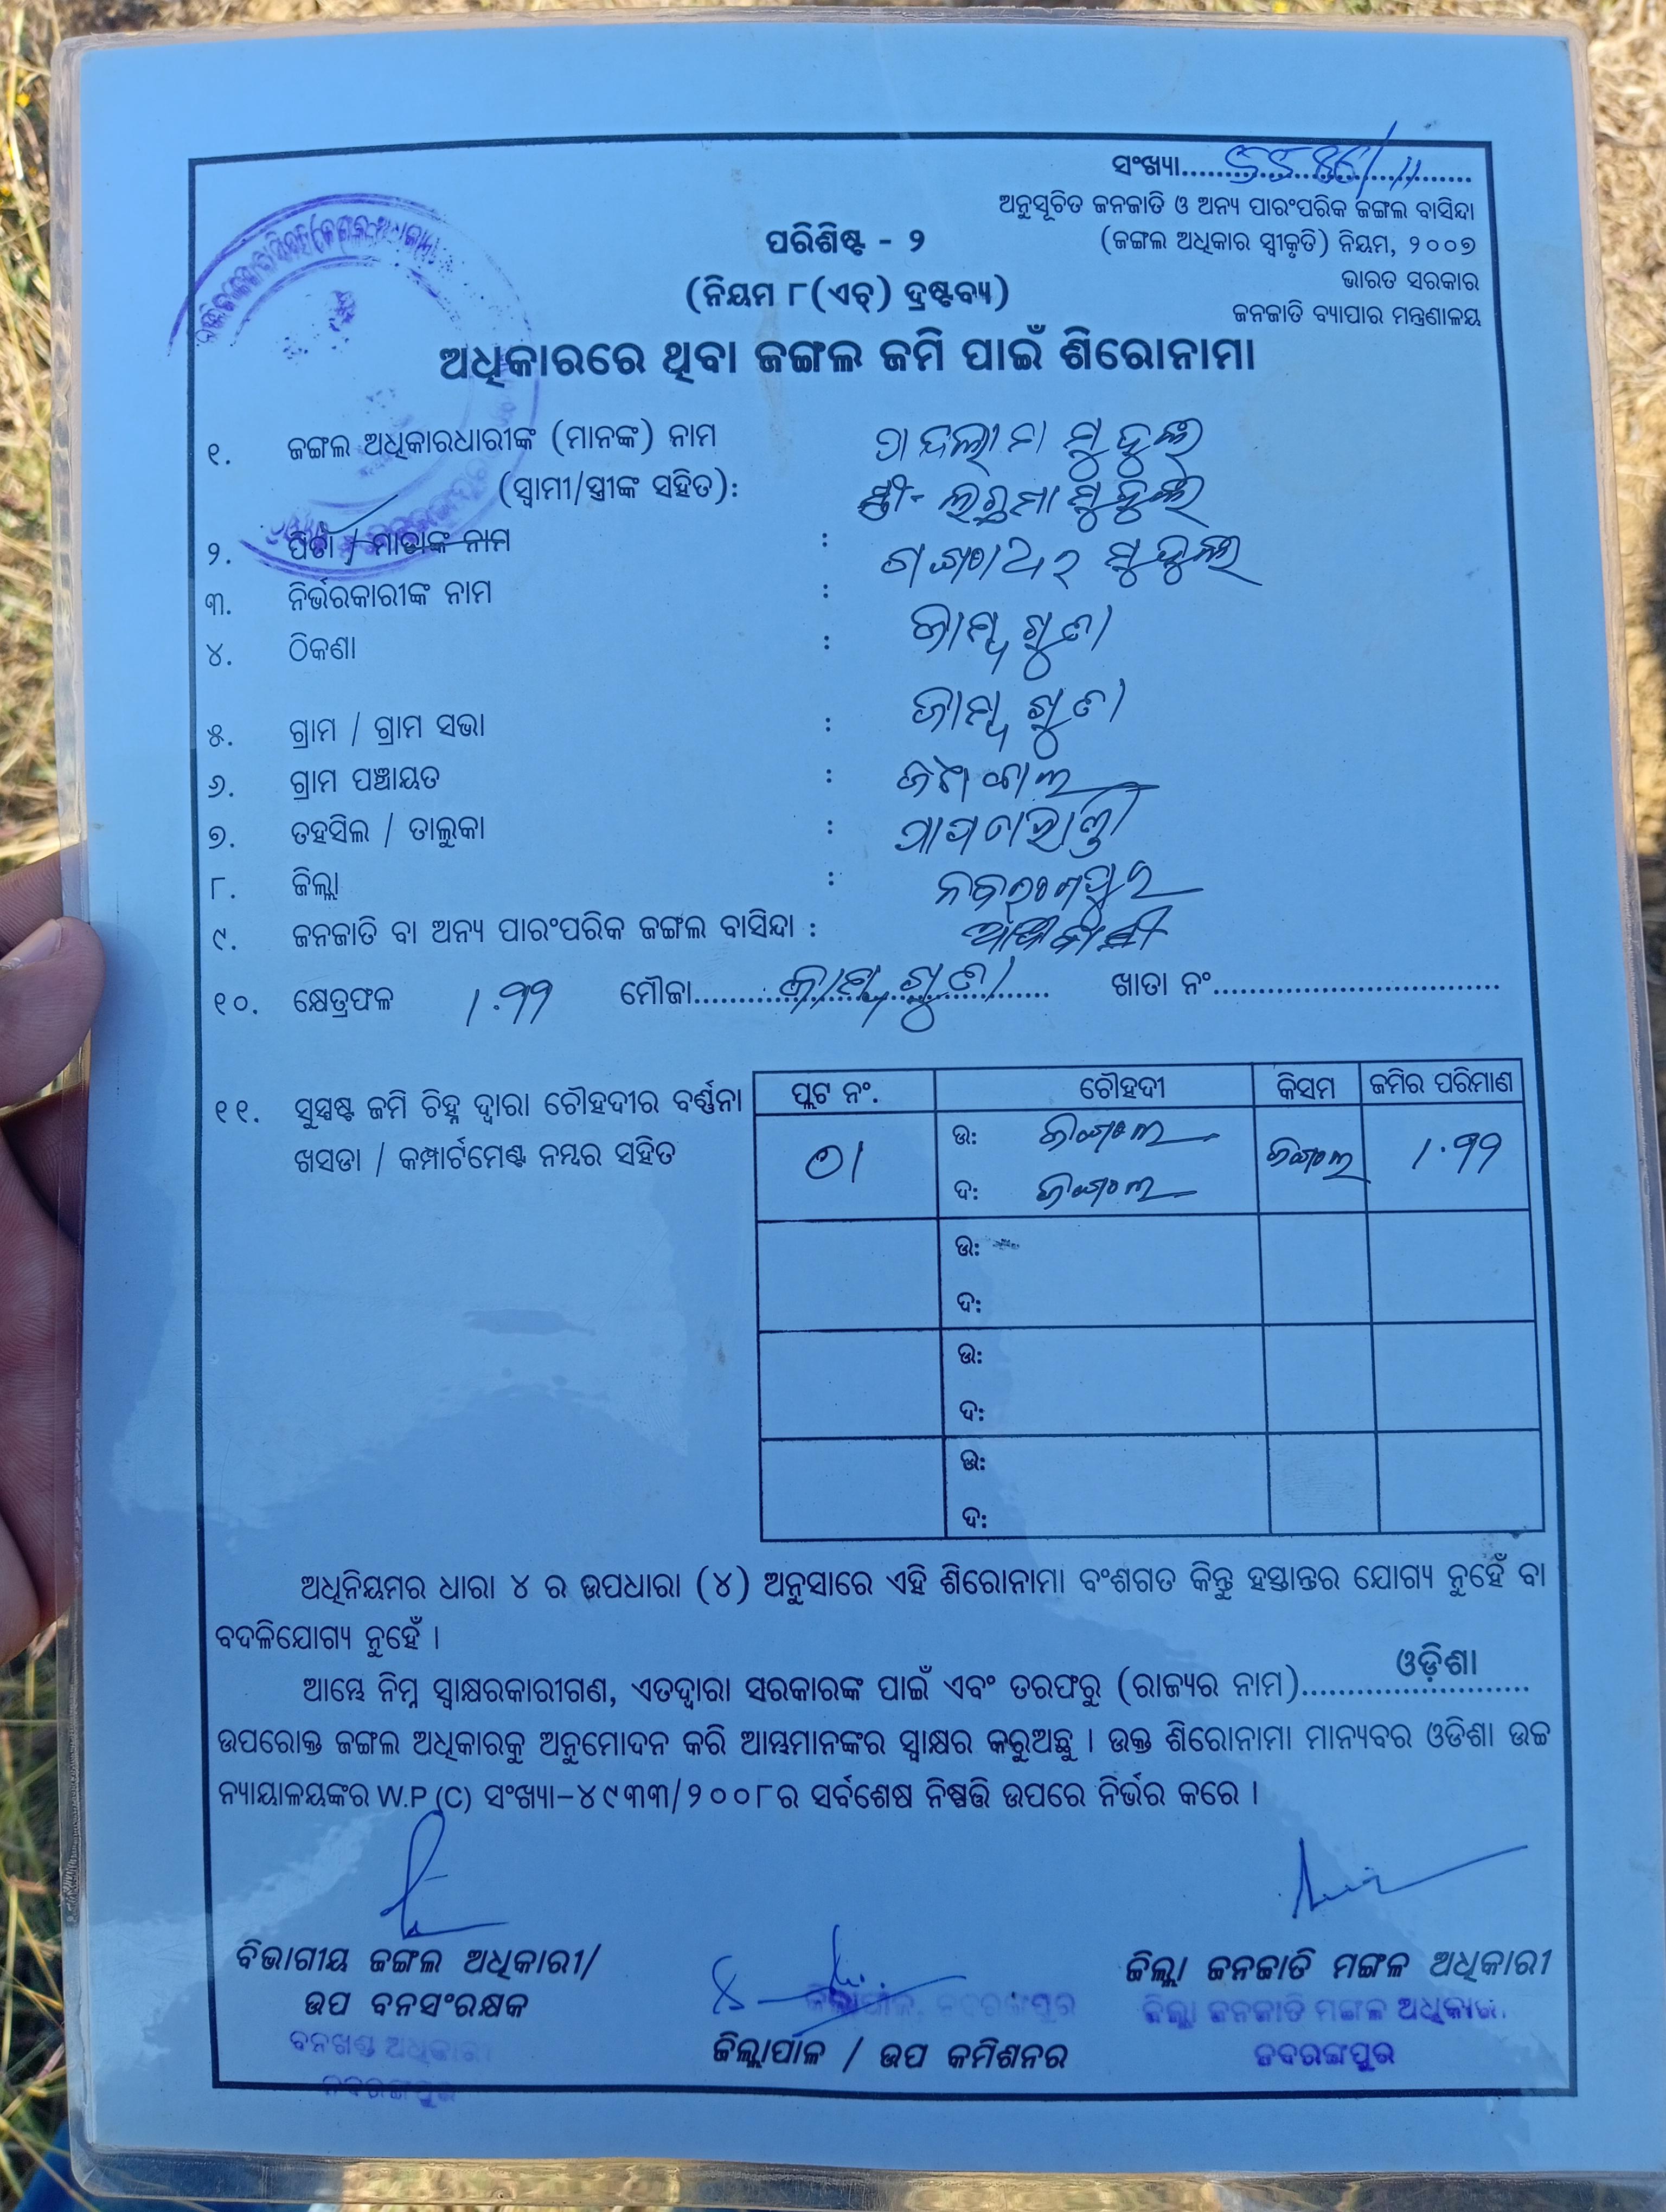 ସଂଖ୍ୟା..............................
ଅନୁସୂଚିତ ଜନଜାତି ଓ ଅନ୍ୟ ପାରଂପରିକ ଜଙ୍ଗଲ ବାସିନ୍ଦା
(ଜଙ୍ଗଲ ଅଧିକାର ସ୍ୱୀକୃତି) ନିୟମ, ୨୦୦୭
ଭାରତ ସରକାର
ଜନଜାତି ବ୍ୟାପାର ମନ୍ତ୍ରଣାଳୟ
ପରିଶିଷ୍ଟ - ୨
(ନିୟମ ୮(ଏଚ୍) ଦ୍ରଷ୍ଟବ୍ୟ)
ଅଧିକାରରେ ଥିବା ଜଙ୍ଗଲ ଜମି ପାଇଁ ଶିରୋନାମା
୧. ଜଙ୍ଗଲ ଅଧିକାରଧାରୀଙ୍କ (ମାନଙ୍କ) ନାମ
(ସ୍ୱାମୀ/ସ୍ତ୍ରୀଙ୍କ ସହିତ):
୨. ପିତା / ମାତାଙ୍କ ନାମ :
୩. ନିର୍ଭରକାରୀଙ୍କ ନାମ :
୪. ଠିକଣା : ଜାମ୍ବୁଗୁଡା
୫. ଗ୍ରାମ / ଗ୍ରାମ ସଭା : ଜାମ୍ବୁଗୁଡା
୬. ଗ୍ରାମ ପଞ୍ଚାୟତ :
୭. ତହସିଲ / ତାଲୁକା : ପାପଡାହାଣ୍ଡି
୮. ଜିଲ୍ଲା : ନବରଂଗପୁର
୯. ଜନଜାତି ବା ଅନ୍ୟ ପାରଂପରିକ ଜଙ୍ଗଲ ବାସିନ୍ଦା : ଆଦିବାସୀ
୧୦. କ୍ଷେତ୍ରଫଳ ୧.୩୩ ମୌଜା.......ଜାମ୍ବୁଗୁଡା....... ଖାତା ନଂ..............................
୧୧. ସୁସ୍ପଷ୍ଟ ଜମି ଚିହ୍ନ ଦ୍ୱାରା ଚୌହଦୀର ବର୍ଣ୍ଣନା
ଖସଡା / କମ୍ପାର୍ଟମେଣ୍ଟ ନମ୍ବର ସହିତ
ପ୍ଲଟ ନଂ. ଚୌହଦୀ କିସମ ଜମିର ପରିମାଣ
ଉ: ଜଙ୍ଗଲ
ଦ: ଜଙ୍ଗଲ
ଜଙ୍ଗଲ
ଉ:
ଦ:
ଉ:
ଦ:
ଉ:
ଦ:
ଅଧିନିୟମର ଧାରା ୪ ର ଉପଧାରା (୪) ଅନୁସାରେ ଏହି ଶିରୋନାମା ବଂଶଗତ କିନ୍ତୁ ହସ୍ତାନ୍ତର ଯୋଗ୍ୟ ନୁହେଁ ବା
ବଦଳିଯୋଗ୍ୟ ନୁହେଁ ।
ଆମ୍ଭେ ନିମ୍ନ ସ୍ୱାକ୍ଷରକାରୀଗଣ, ଏତଦ୍ୱାରା ସରକାରଙ୍କ ପାଇଁ ଏବଂ ତରଫରୁ (ରାଜ୍ୟର ନାମ).......ଓଡ଼ିଶା.......
ଉପରୋକ୍ତ ଜଙ୍ଗଲ ଅଧିକାରକୁ ଅନୁମୋଦନ କରି ଆମ୍ଭମାନଙ୍କର ସ୍ୱାକ୍ଷର କରୁଅଛୁ । ଉକ୍ତ ଶିରୋନାମା ମାନ୍ୟବର ଓଡିଶା ଉଚ୍ଚ
ନ୍ୟାୟାଳୟଙ୍କର W.P (C) ସଂଖ୍ୟା-୪୯୩୩/୨୦୦୮ର ସର୍ବଶେଷ ନିଷ୍ପତ୍ତି ଉପରେ ନିର୍ଭର କରେ ।
ବିଭାଗୀୟ ଜଙ୍ଗଲ ଅଧିକାରୀ/
ଉପ ବନସଂରକ୍ଷକ
ବନଖଣ୍ଡ ଅଧିକାରୀ
ନବରଙ୍ଗପୁର
ଜିଲ୍ଲାପାଳ, ନବରଙ୍ଗପୁର
ଜିଲ୍ଲାପାଳ / ଉପ କମିଶନର
ଜିଲ୍ଲା ଜନଜାତି ମଙ୍ଗଳ ଅଧିକାରୀ
ଜିଲ୍ଲା ଜନଜାତି ମଙ୍ଗଳ ଅଧିକାରୀ
ନବରଙ୍ଗପୁର